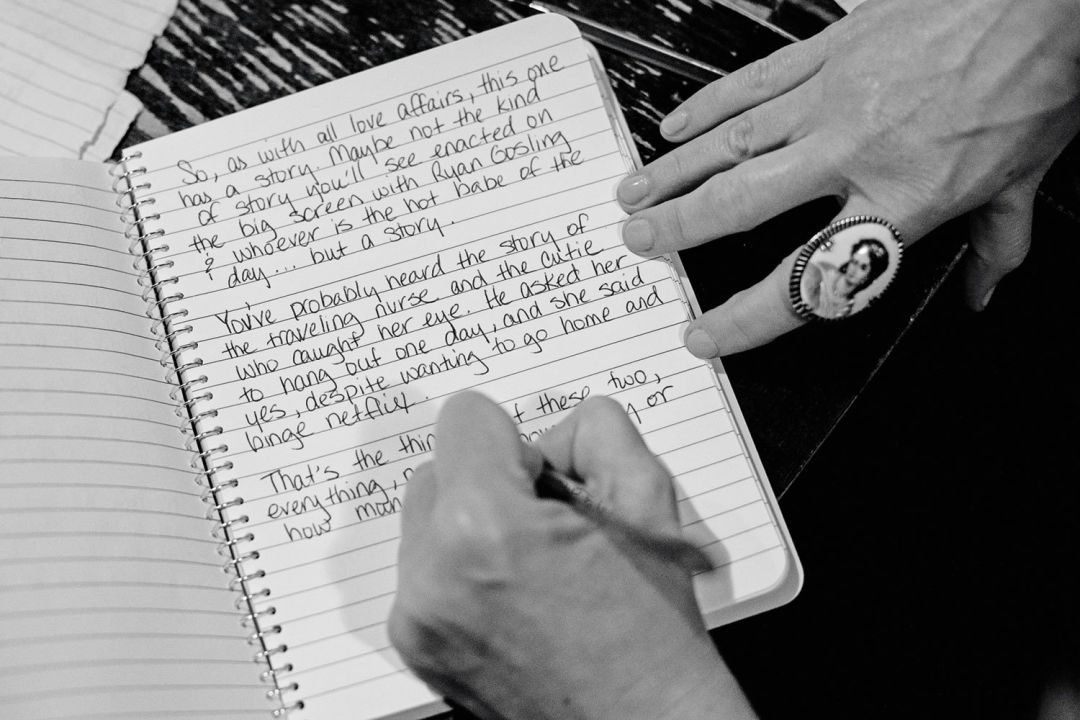 So, as with all love affairs, this one
has a story. Maybe not the kind
of story you'll see enacted on
the big screen with Ryan Gosling
& whoever is the hot babe of the
day... but a story.
You've probably heard the story of
the traveling nurse and the cutie
who caught her eye. He asked her
to hang out one day, and she said
yes, despite wanting to go home and
binge netflix.
That's the these two,
everything, or
how